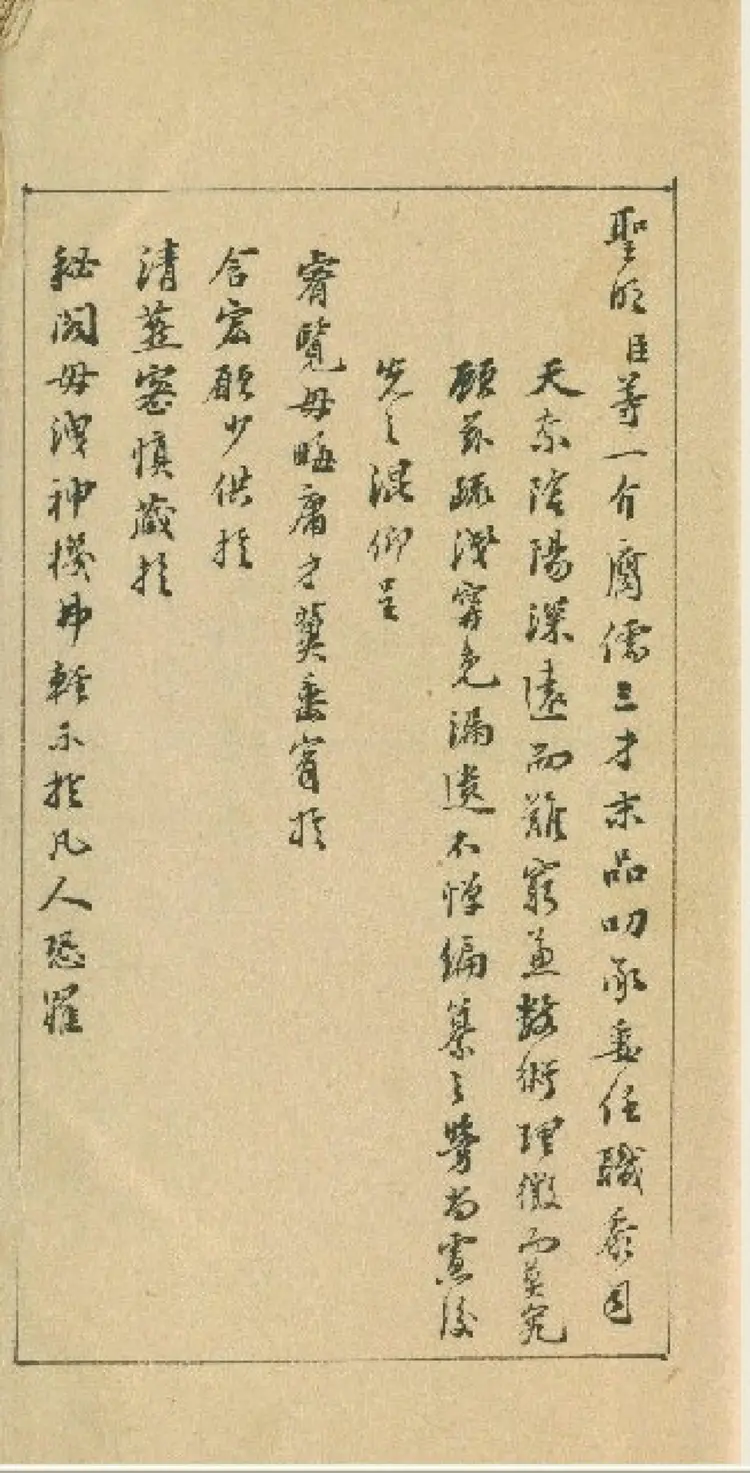 聖明臣等一介腐儒三才末品叨承委任職忝司
天奈陰陽深遠而難窮兼數術理微而莫究
顧茲疏淺寧免漏遺不憚編纂之勞尚慮後
先之混仰呈
睿覽毋晦庸才冀垂宥於
含宏願少供於
清燕密慎藏於
秘閣毋洩神機毋輕示於凡人恐罹